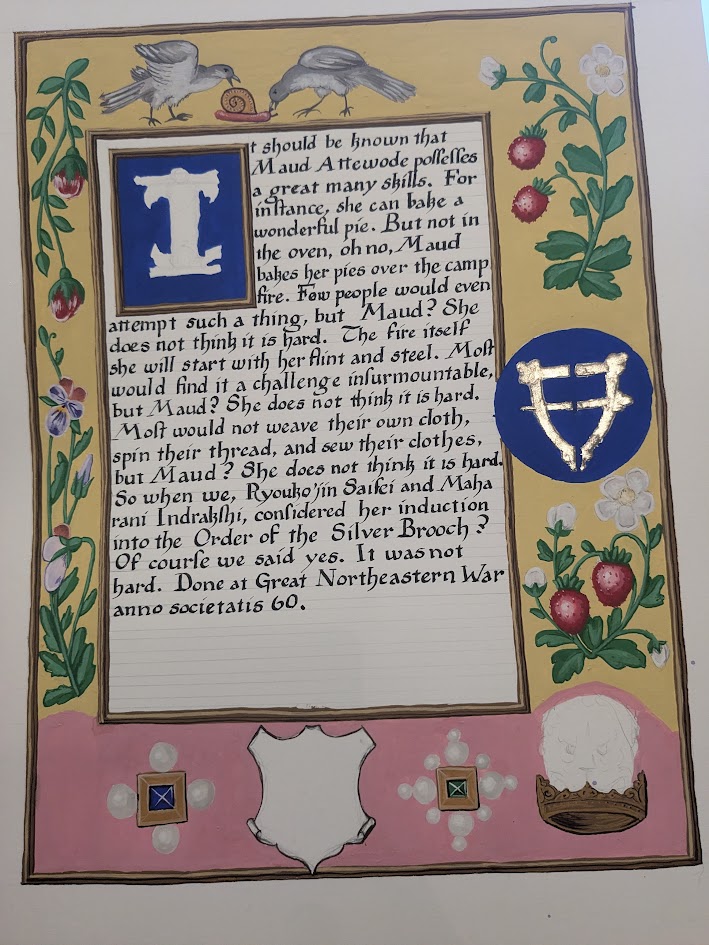 It should be known that
Maud Attewode poſſeſſes
a great many skills. For
inſtance, she can bake a
wonderful pie. But not in
the oven, oh no, Maud
bakes her pies over the camp
fire. Few people would even
attempt such a thing, but Maud? She
does not think it is hard. The fire itself
she will start with her flint and steel. Moſt
would find it a challenge inſurmountable,
but Maud? She does not think it is hard.
Moſt would not weave their own cloth,
spin their thread, and sew their clothes,
but Maud? She does not think it is hard.
So when we, Ryouko'jin Saikei and Maha
rani Indrakshi, conſidered her induction
into the Order of the Silver Brooch?
Of courſe we said yes. It was not
hard. Done at Great Northeastern War
anno societatis 60.